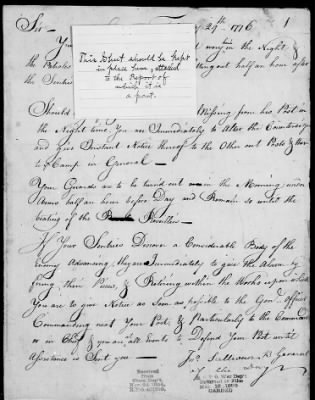 Sir — 24th 1776 1
You any in the Night &
the Patroles ling out half an hour after
the Sentries
This Sheet should be kept
in place here, attached
to the Report of
which it is
a part.
Should Missing from his Post in
the Night time, You are Immediately to Alter the Countersign
and Give Instant Notice thereof to the Other out Posts &
Camp in General —
Your Guards are to be turned out in the Morning under
Arms half an hour before Day and Remain so until the
beating of the Revellie —
If Your Sentries Discover a Considerable Body of the
Enemy Advancing, they are Immediately to give the Alarm by
firing their Pieces, & Retiring within the Works upon which
You are to give Notice as Soon as possible to the Genl. Officer
Commanding near Your Post, & Particularly to the Commander
in Chief & you are at all Events to Defend Your Post until
Assistance is Sent you —
Jno. Sullivan B. General
of the Day
Received
From
War Dep't
CARDED